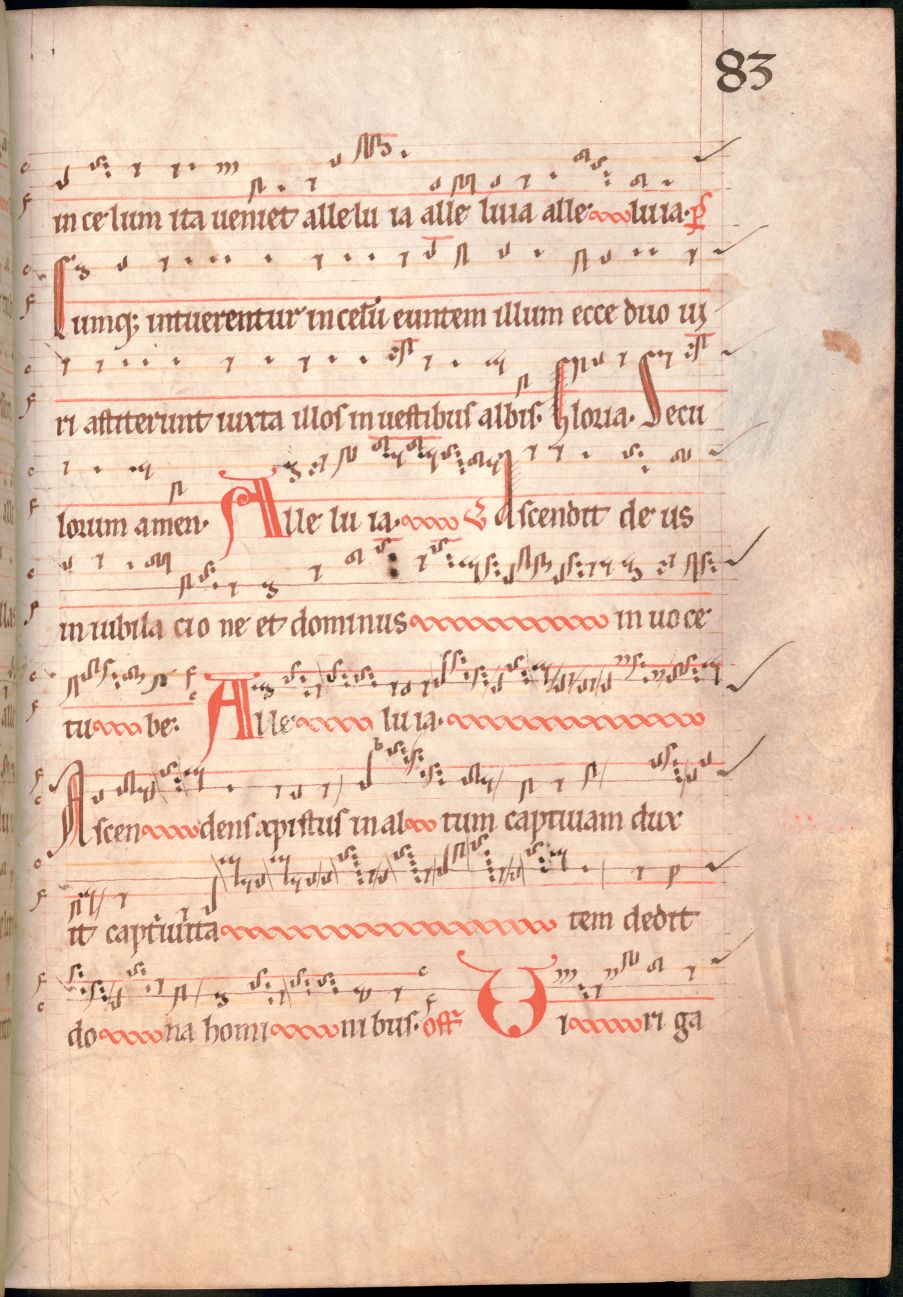 83
in celum ita ueniet allelu ia alle luia alle luia. p̄s
Cumq; intuerentur in celū euntem illum ecce duo ui
ri astiterunt iuxta illos in uestibus albis. Gloria. Secu
lorum amen. Alle lu ia. V Ascendit de us
in iubila cio ne et dominus in uo ce
tu be. Alle lu ia.
Ascen dens xpistus in al tum captiuam dux
it captiuita tem dedit
do na homi nibus. off Vi ri ga